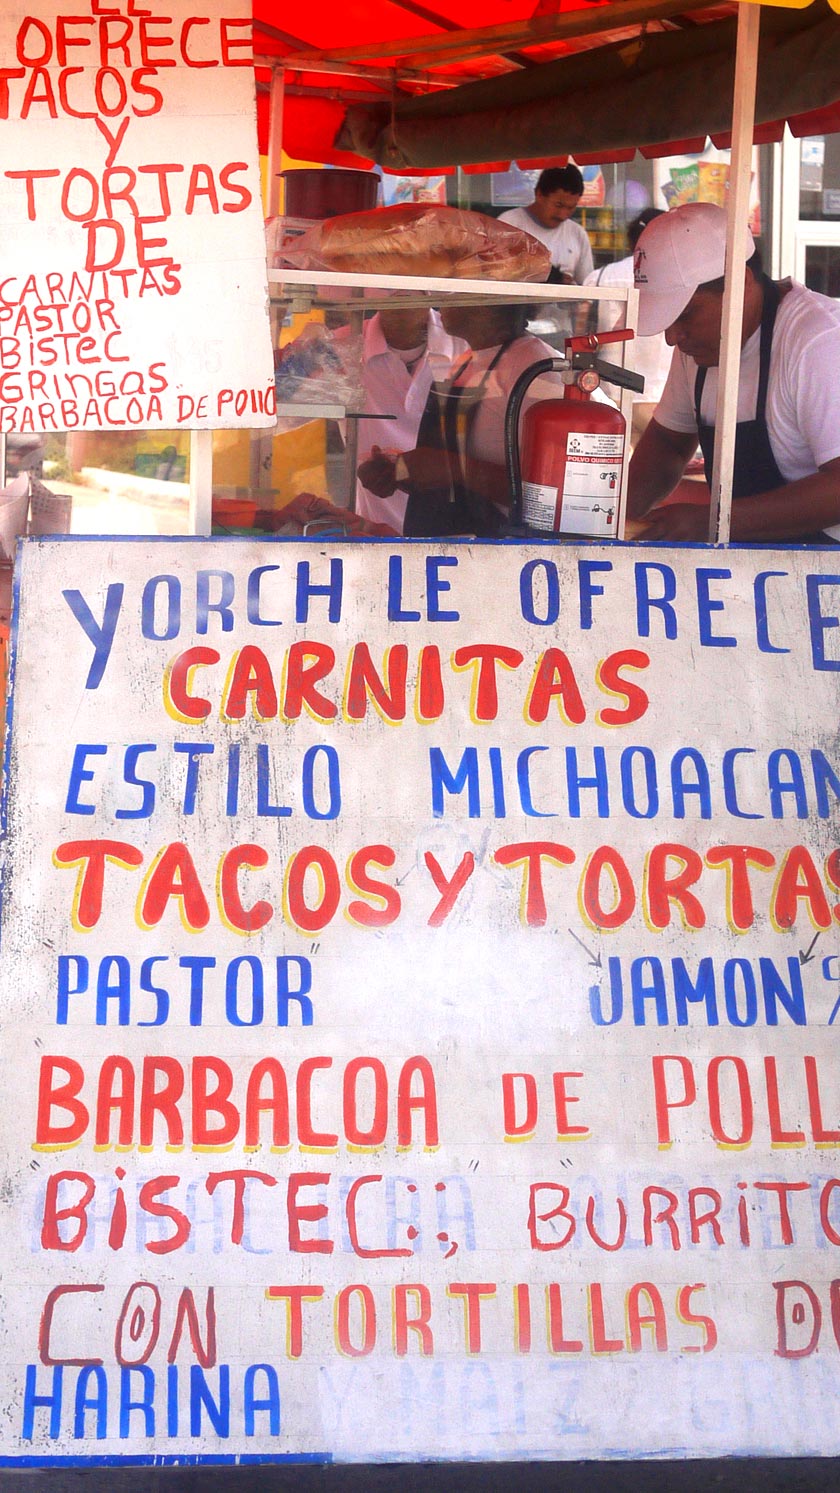 LE
OFRECE
TACOS
Y
TORTAS
DE
CARNITAS
PASTOR
BISTEC
GRINGAS
BARBACOA DE POLLO
POLVO QUIMICO
YORCH LE OFRECE
CARNITAS
ESTILO MICHOACAN
TACOS Y TORTAS
PASTOR JAMON
BARBACOA DE POLL
BISTEC:, BURRITO
CON TORTILLAS D
HARINA Y MAIZ